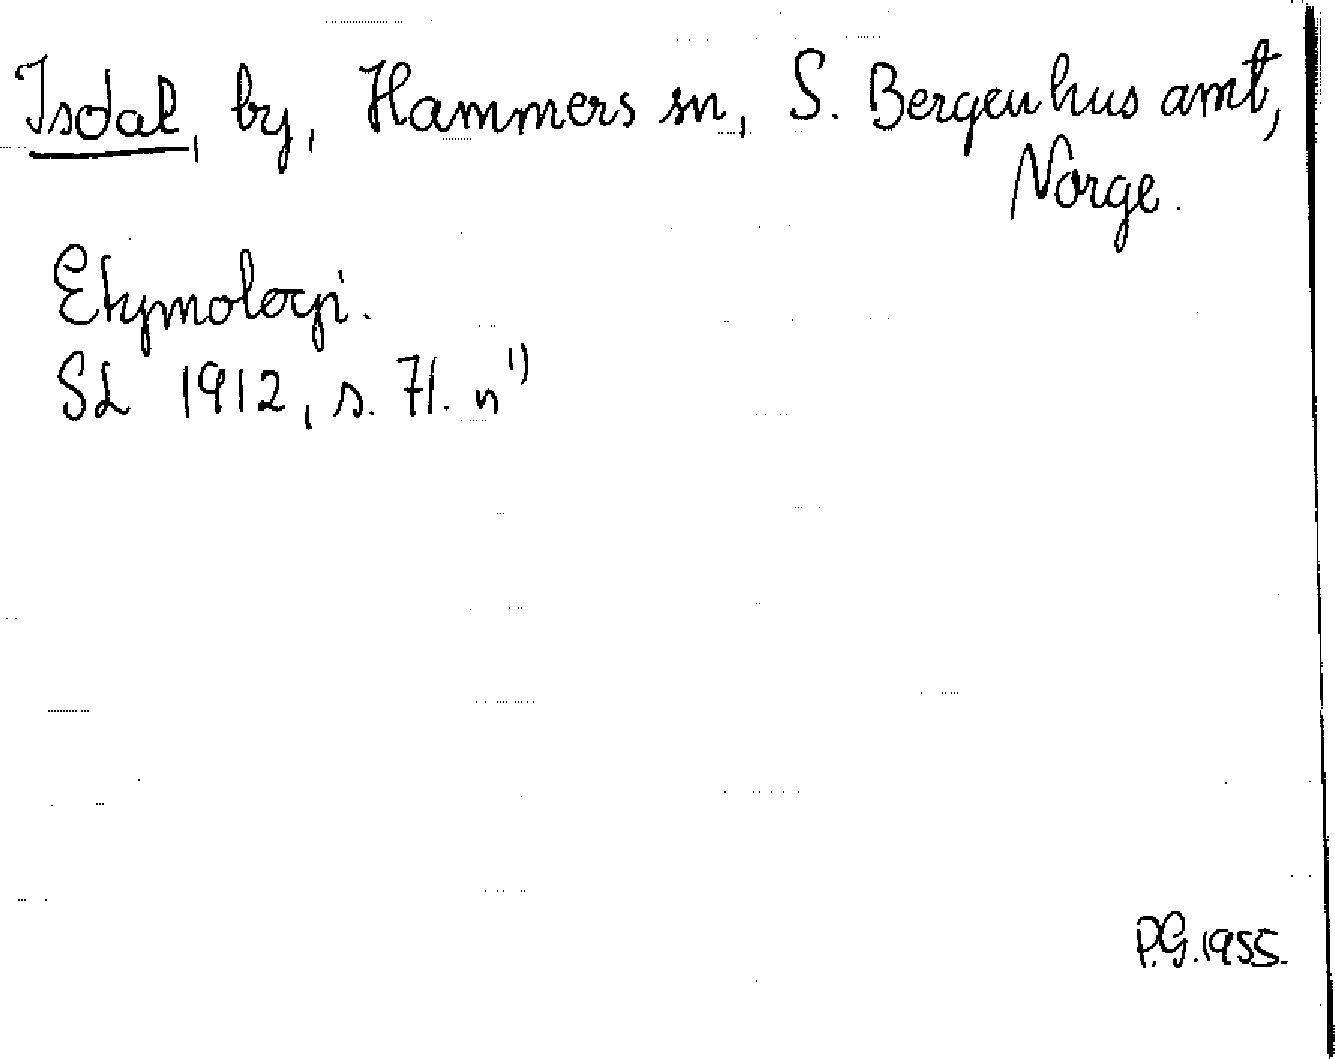 Isdal, by, Hammers sn, S. Bergenhus amt,
Norge.
Etymologi.
SL 1912, s. 71. n¹⁾
P.G. 1955.